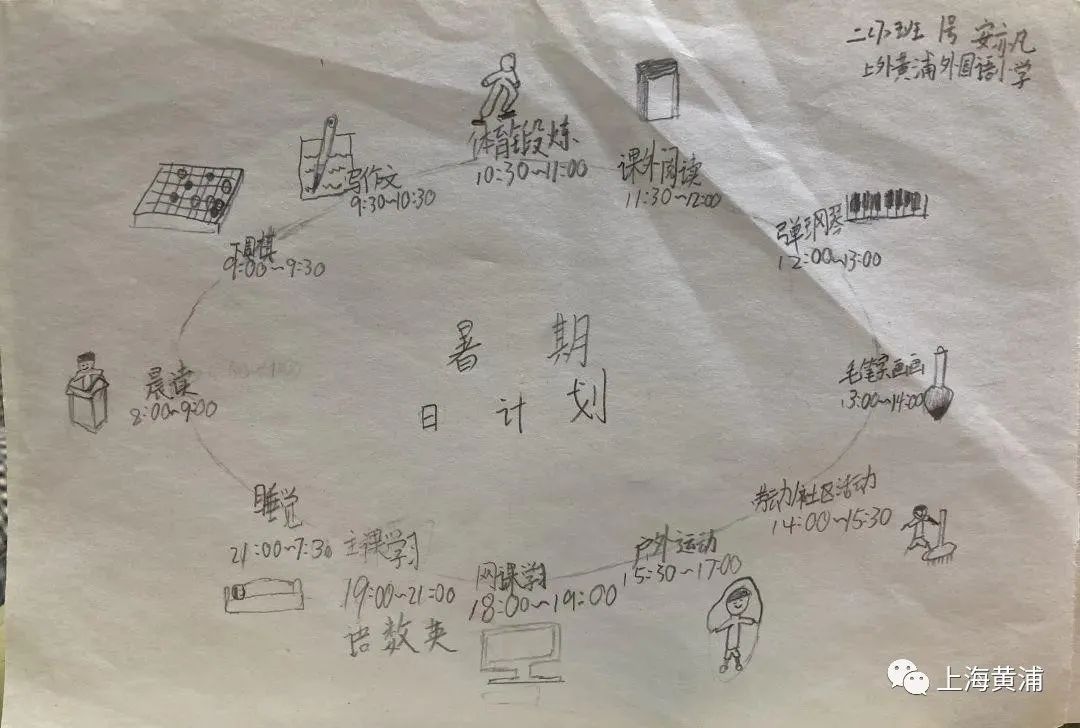 二(7)班 1号 安亦凡
上外黄浦外国语小学
体育锻炼
10:30~11:00
课外阅读
11:30~12:00
弹钢琴
12:00~13:00
毛笔画画
13:00~14:00
劳动/社区活动
14:00~15:30
户外运动
15:30~17:00
网课学习
18:00~19:00
主课学习
19:00~21:00
语数英
睡觉
21:00~7:30
晨读
8:00~9:00
下围棋
9:00~9:30
写作文
9:30~10:30
暑期
日计划
上海黄浦